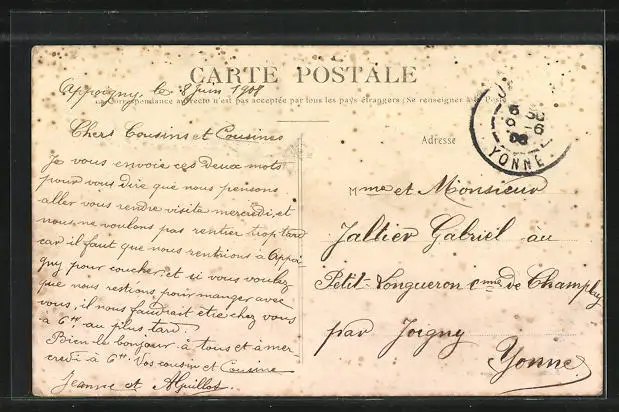 CARTE POSTALE
Appoigny, le 8 Juin 1908
La Correspondance au recto n'est pas acceptée par tous les pays étrangers (Se renseigner à la Poste)
Chers Cousins et Cousines
Je vous envoie ces deux mots
pour vous dire que nous pensons
aller vous rendre visite mercredi, et
nous ne voulons pas rentrer trop tard
car il faut que nous rentrions à Appoi
gny pour coucher, et si vous voulez
que nous restions pour manger avec
vous, il nous faudrait être chez vous
à 6h au plus tard.
Bien le bonjour à tous et à mer-
credi à 6h. Vos cousin et Cousine
Jeanne et
Adresse
YONNE
Mme et Monsieur
Jaltier Gabriel au
Petit-Longueron Cnne de Champlay
par Joigny
Yonne